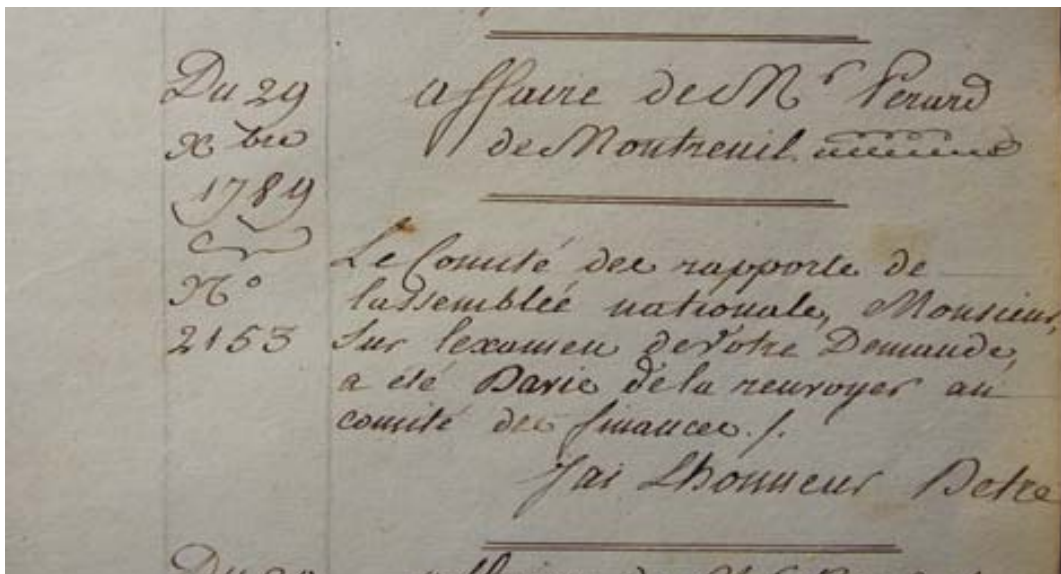 Du 29
xbre
1789
N°
2153
affaire de Mr Perard
de Montreuil
Le Comité des rapports de
lassemblée nationale, Monsieur,
Sur lexamen de Votre Demande,
a eté Davis de la renvoyer au
comité des finances ./.
Jai Lhonneur Detre